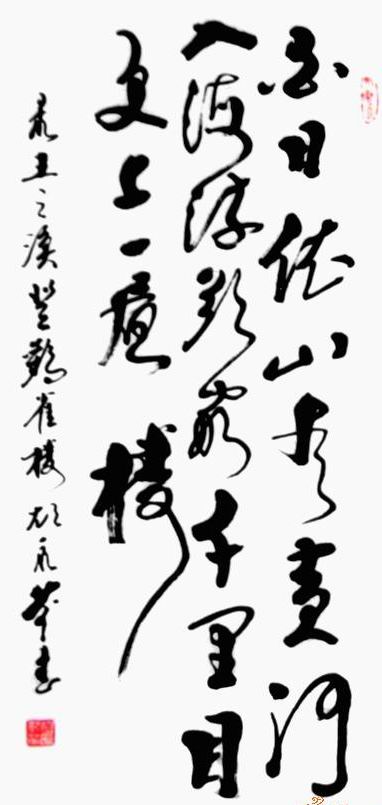 白日依山尽黄河
入海流欲穷千里目
更上一层楼
录王之涣登鹳雀楼 永 书